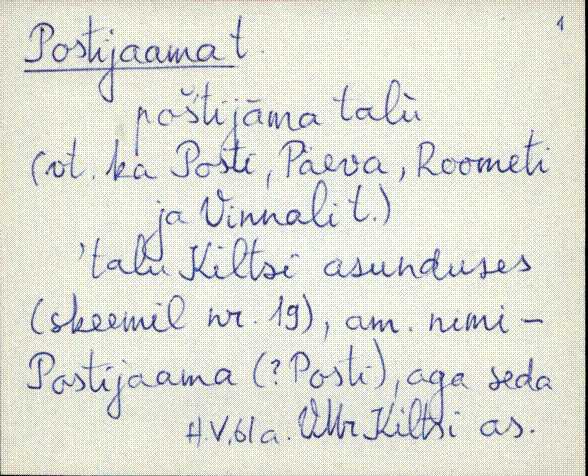 1
Postijaama t.
poštijāma talù
(vt. ka Posti, Päeva, Roometi
ja Vinnali t.)
'talu Kiltsi asunduses
(skeemil nr. 19), am. nimi -
Postijaama (? Posti), aga seda
A.V. 61 a. VMr Kiltsi as.